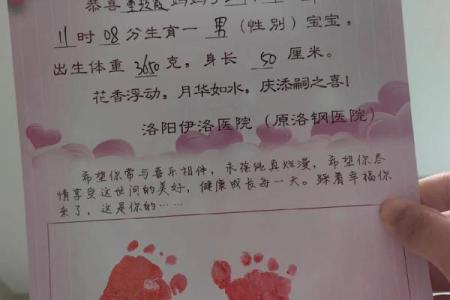 恭喜
11时08分生育一男(性别)宝宝,
出生体重3650克,身长50厘米。
花香浮动,月华如水,庆添嗣之喜!
洛阳伊洛医院(原洛钢医院)
希望你常与喜乐相伴,永葆纯真烂漫,希望你尽
情享受这世间的美好,健康成长每一天。踩着幸福你
来了,这是你的……